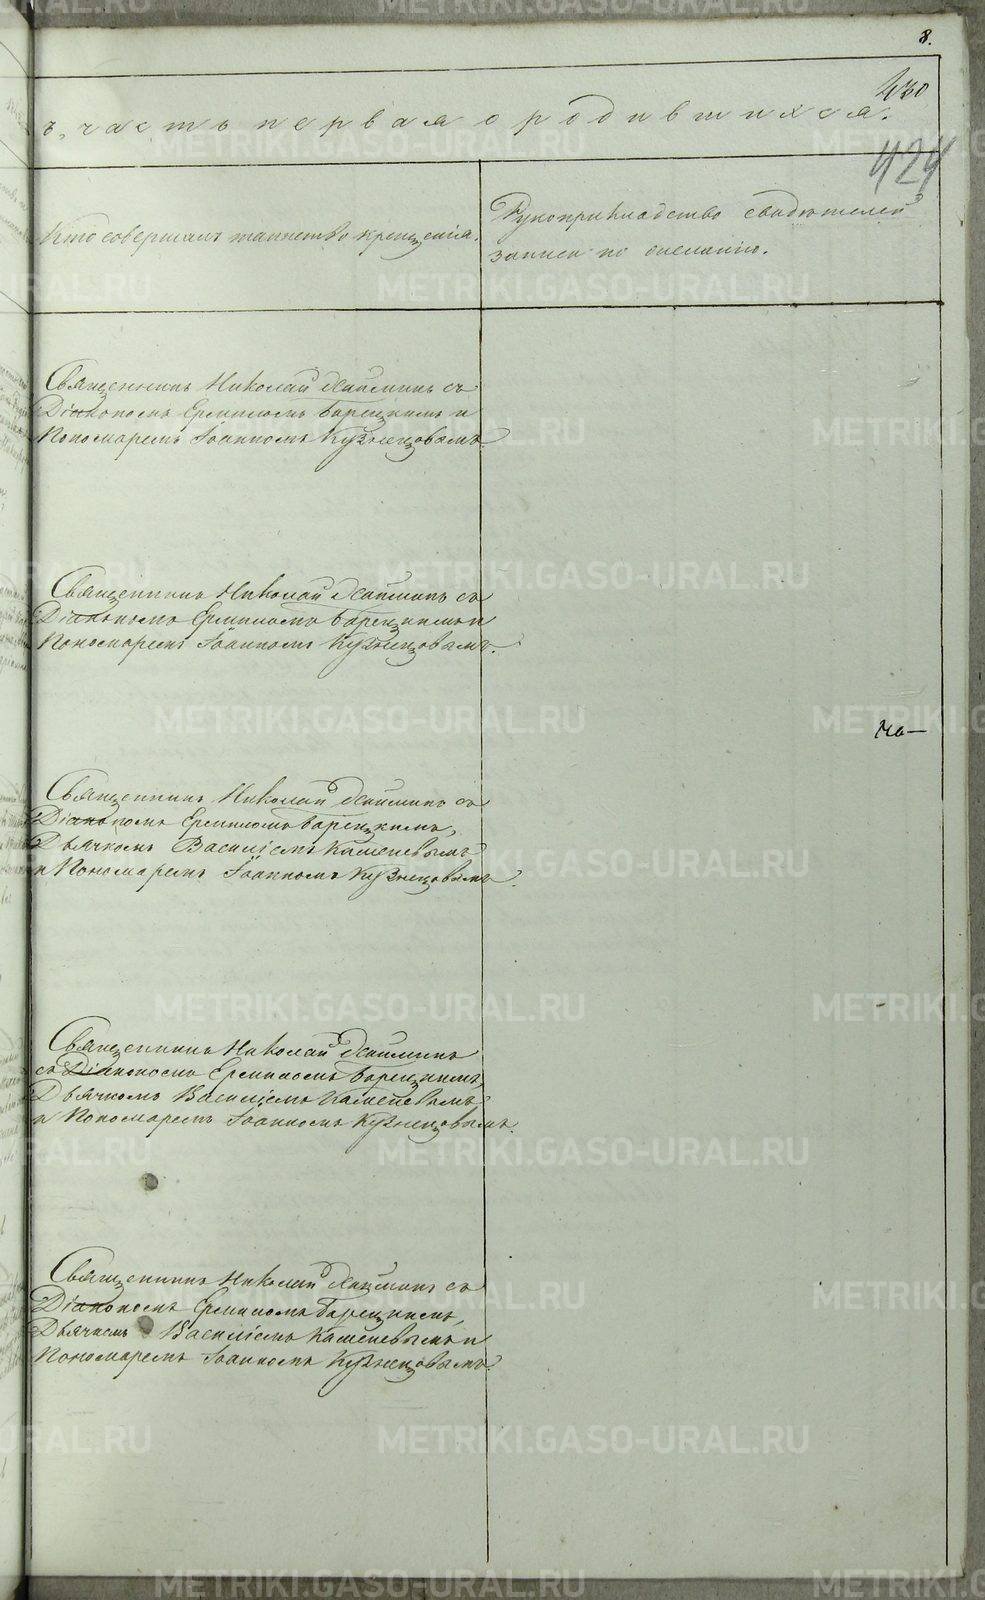 8.
430
ъ, часть первая о родившихся.
424
Кто совершалъ таинство крещенія.
Рукоприкладство свидѣтелей
записи по желанію.
Священникъ Николай съ
Діакономъ Ермиломъ Барецкимъ и
Пономаремъ Іоанномъ Кузнецовымъ.
Священникъ Николай съ
Діакономъ Ермиломъ Барецкимъ и
Пономаремъ Іоанномъ Кузнецовымъ.
Священникъ Николай съ
Діакономъ Ермиломъ Барецкимъ,
Дьячкомъ Василіемъ Каменевымъ
и Пономаремъ Іоанномъ Кузнецовымъ.
Священникъ Николай
съ Діакономъ Ермиломъ Барецкимъ,
Дьячкомъ Василіемъ Каменевымъ
и Пономаремъ Іоанномъ Кузнецовымъ.
Священникъ Николай съ
Діакономъ Ермиломъ Барецкимъ,
Дьячкомъ Василіемъ Каменевымъ и
Пономаремъ Іоанномъ Кузнецовымъ.
METRIKI.GASO-URAL.RU